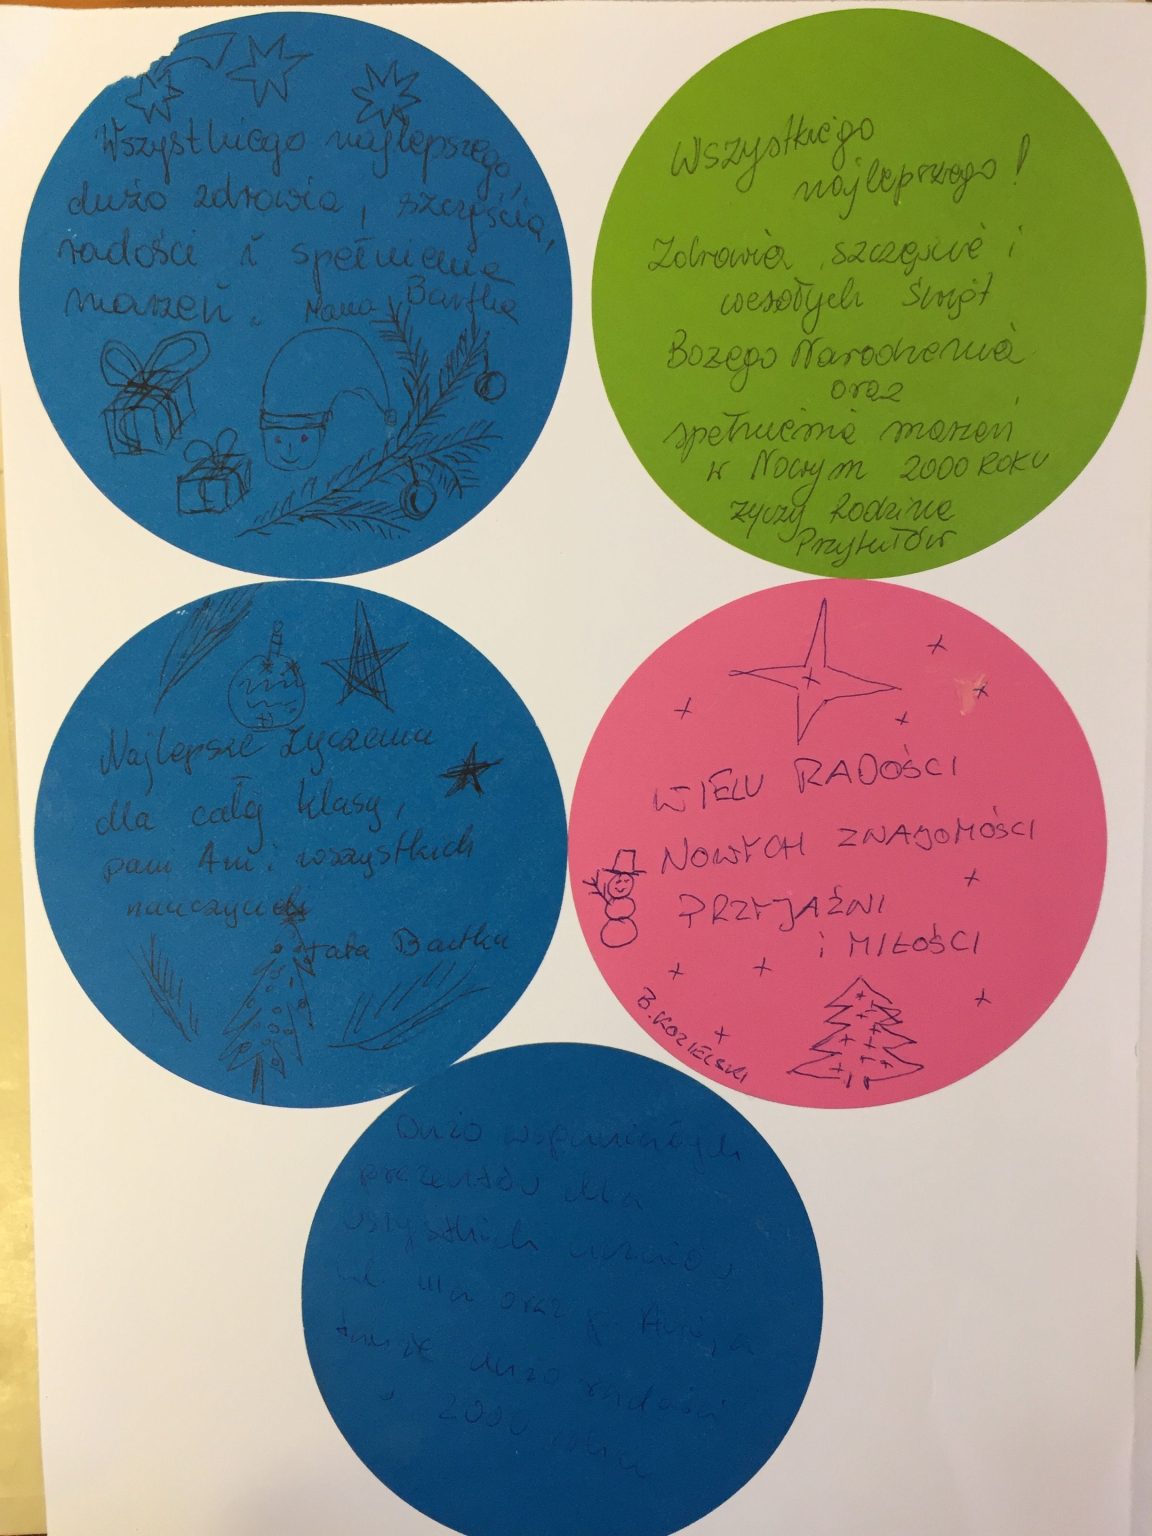 Wszystkiego najlepszego,
dużo zdrowia, szczęścia,
radości i spełnienia
marzeń. Mama Bartka
Wszystkiego
najleprzego!
Zdrowia, szczęścia i
wesołych Świąt
Bożego Narodzenia
oraz
spełnienia marzeń
w Nowym 2000 ROKU
życzy Rodzina
Przytułów
Najlepsze życzenia
dla całej klasy,
pani Ani i wszystkich
nauczycieli
tata Bartka
WIELU RADOŚCI
NOWYCH ZNAJOMOŚCI
PRZYJAŹNI
i MIŁOŚCI
B. KOZIELSKI
Dużo wspaniałych
prezentów dla
wszystkich uczniów
kl. IIIa oraz p. Ani, a
także dużo radości
w 2000 roku